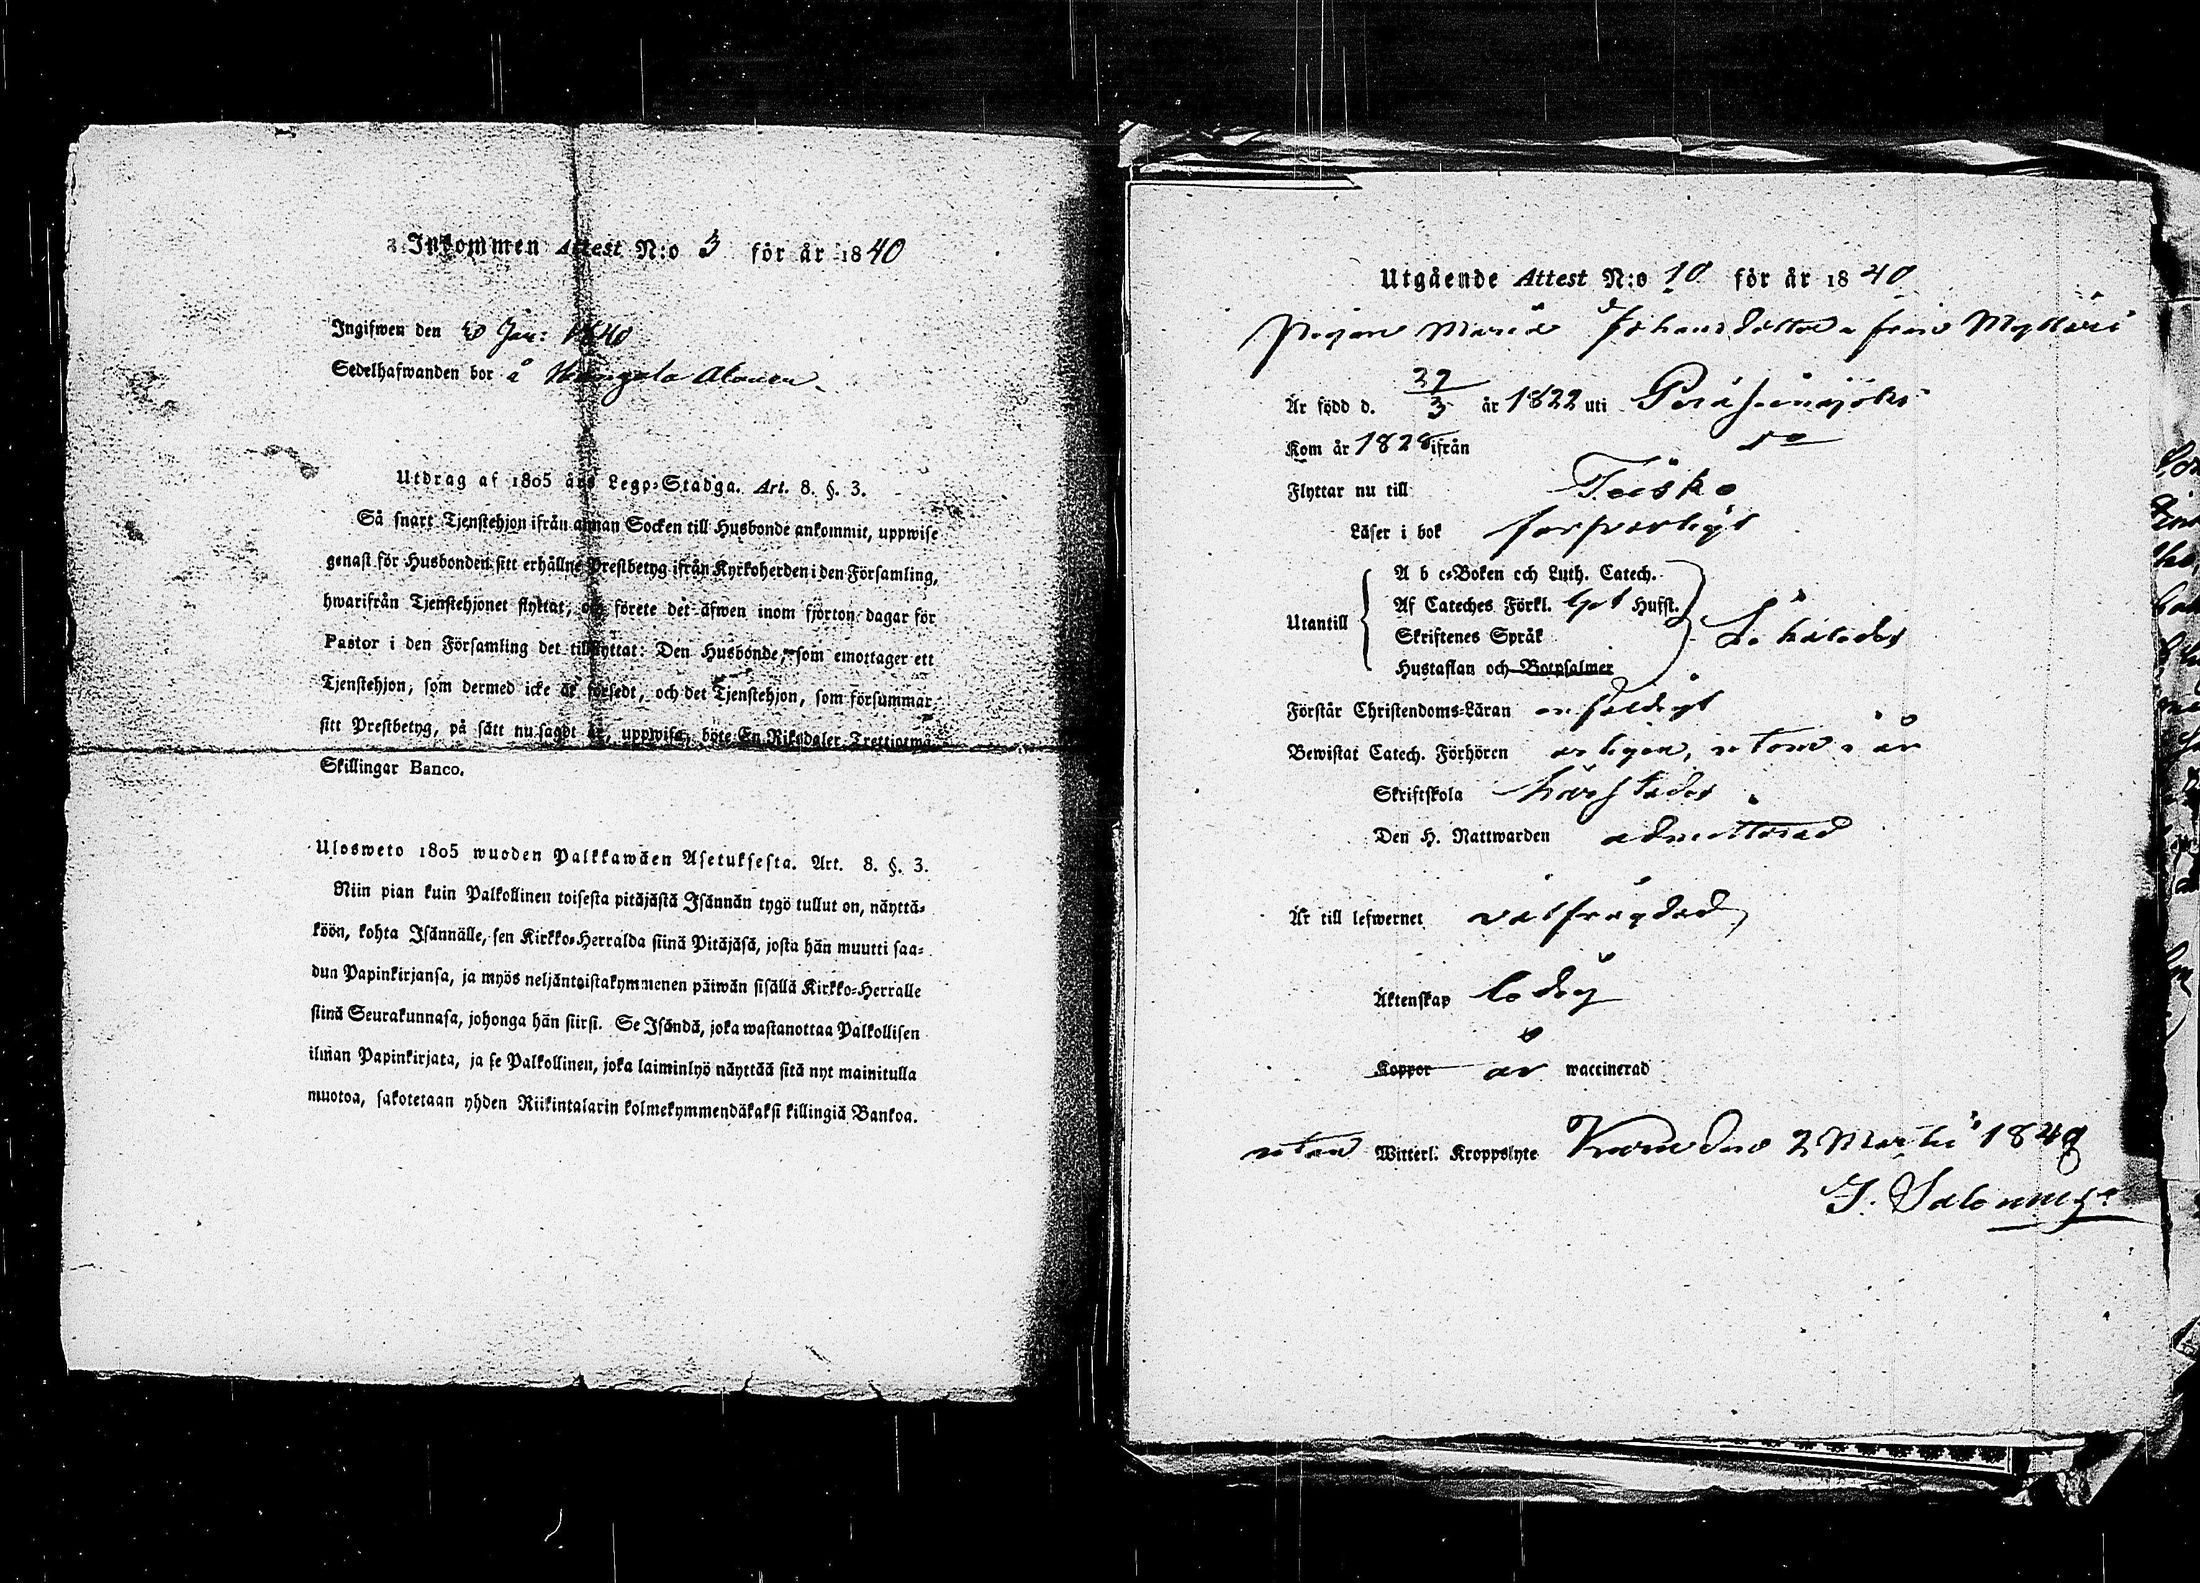 Inkommen Attest N:o 3 för år 1840
Ingifwen den Jan: 1840
Sedelhafwanden bor å
Utdrag af 1805 års Lego-Stadga. Art. 8. §. 3.
Så snart Tjenstehjon ifrån annan Socken till Husbonde ankommit, uppwise
genast för Husbonden sitt erhållne Prestbetyg ifrån Kyrkoherden i den Församling,
hwarifrån Tjenstehjonet flyttat, och förete det äfwen inom fjorton dagar för
Pastor i den Församling det tillflyttat: Den Husbonde, som emottager ett
Tjenstehjon, som dermed icke är försedt, och det Tjenstehjon, som försummar
sitt Prestbetyg, på sätt nu sagdt är, uppwisa, böte En Riksdaler Trettiotwå
Skillingar Banco.
Ulosweto 1805 wuoden Palkkawäen Asetuksesta. Art. 8. §. 3.
Niin pian kuin Palkollinen toisesta pitäjästä Isännän tygö tullut on, näyttä-
köön, kohta Isännälle, sen Kirkko-Herralda siinä Pitäjäsä, josta hän muutti saa-
dun Papinkirjansa, ja myös neljäntoistakymmenen päiwän sisällä Kirkko-Herralle
siinä Seurakunnasa, johonga hän siirsi. Se Isändä, joka wastanottaa Palkollisen
ilman Papinkirjata, ja se Palkollinen, joka laiminlyö näyttää sitä nyt mainitulla
muotoa, sakotetaan yhden Riikintalarin kolmekymmendäkaksi killingiä Bankoa.
Utgående Attest N:o 10 för år 1840
Pigan Maria Johansdotter från Myllari
Är född d. 27/3 år 1822 uti Peräseinäjoki
Kom år 1828 ifrån do
Flyttar nu till Teisko
Läser i bok försvarligt
Utantill
A b c-Boken och Luth. Catech.
Af Cateches Förkl. Hufst.
Skriftenes Språk
Hustaflan och Botpsalmer
Förstår Christendoms-Läran enfaldigt
Bewistat Catech. Förhören årligen, utom i år
Skriftskola
Den H. Nattwarden admitterad
Är till lefwernet välfrägdad
Äktenskap ledig
Koppor är waccinerad
utan Witterl. Kroppslyte den 2 Martii 1840